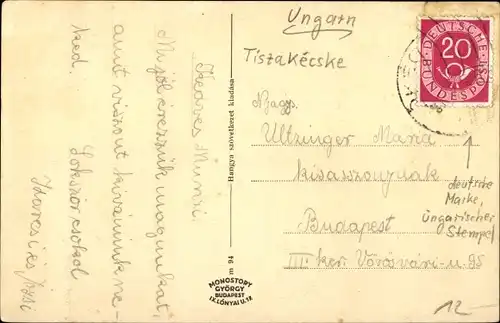 Ungarn
Tiszakécske
DEUTSCHE BUNDESPOST
20
Kedves Munzi
Mi jól érezzük magunkat,
amit viszont kivánunk ne-
ked.
Sokszor csókol
Hangya szövetkezet kiadása
m 94
MONOSTORY
GYÖRGY
BUDAPEST
IX. LÓNYAI U. 17
Nagys.
Ultzinger Maria
kisasszonynak
Budapest
III. ker. Vörösvári-u. 95
deutsche
Marke,
ungarischer
Stempel
12